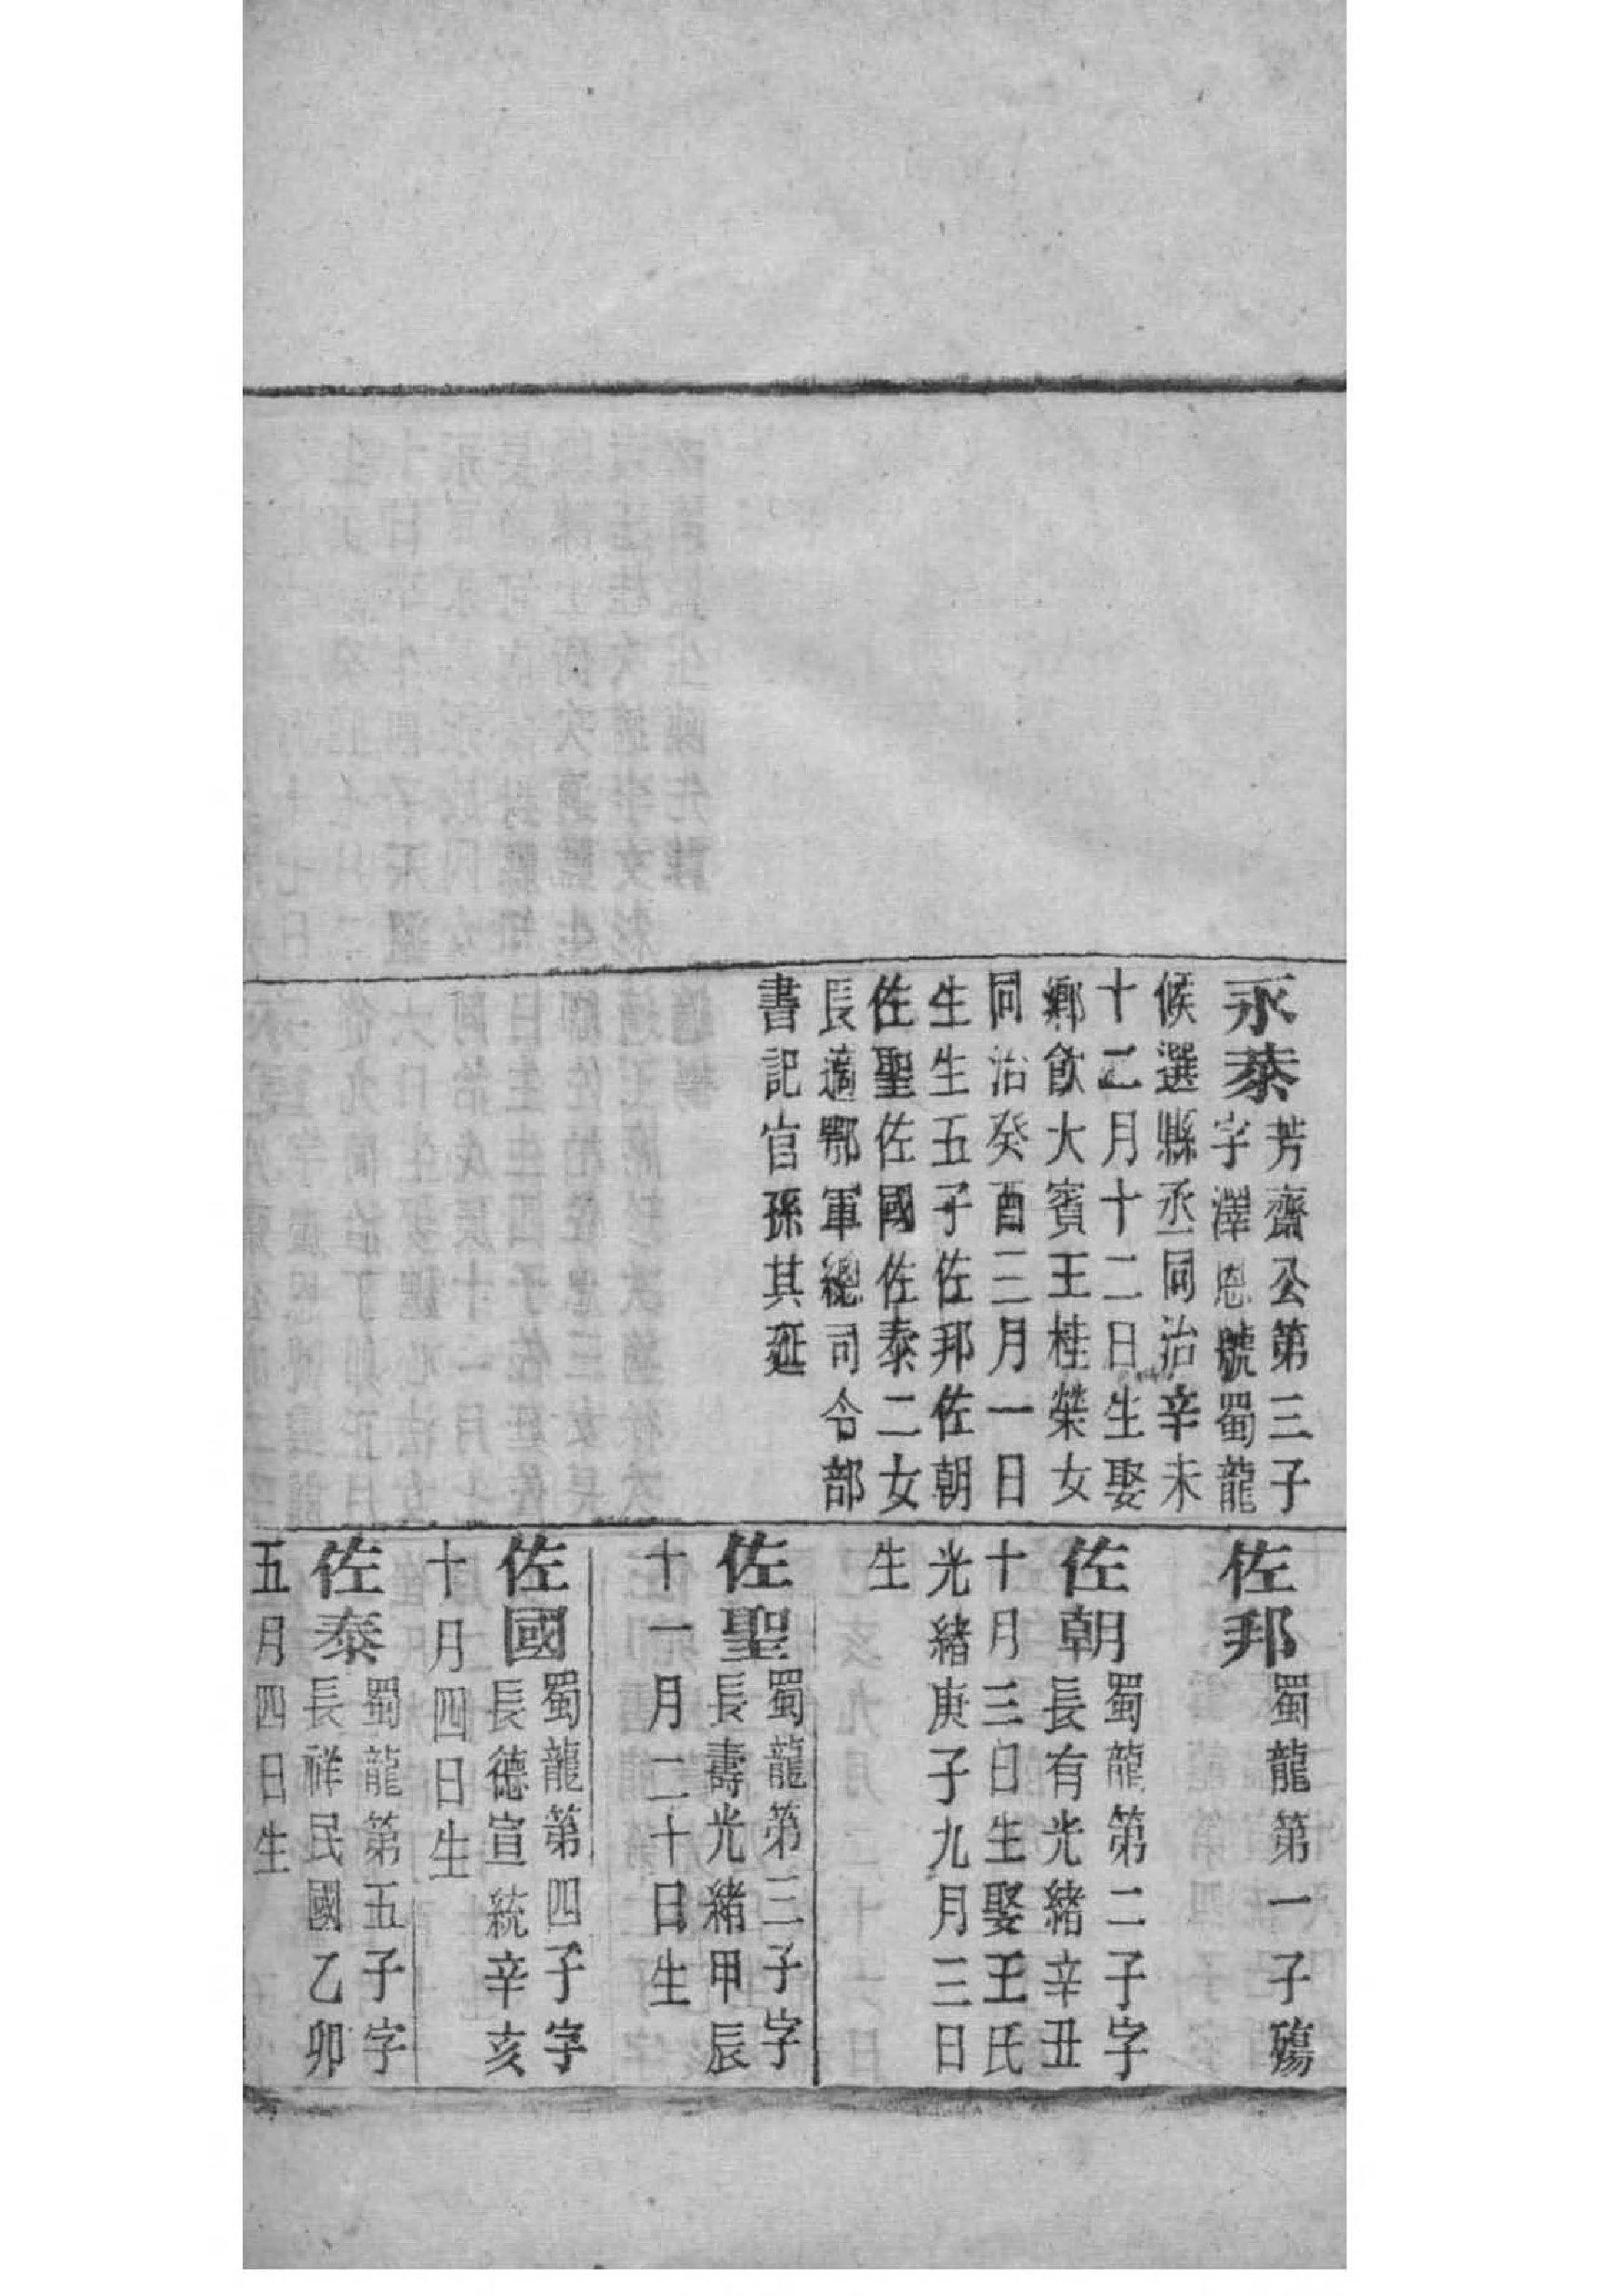 永泰
芳齋公第三子
字澤恩號蜀龍
候選縣丞同治辛未
十二月十二日生娶
鄉飲大賓王桂榮女
同治癸酉三月一日
生生五子佐邦佐朝
佐聖佐國佐泰二女
長適鄂軍總司令部
書記官孫其延
佐邦
蜀龍第一子殤
佐朝
蜀龍第二子字
長有光緒辛丑
十月三日生娶王氏
光緒庚子九月三日
生
佐聖
蜀龍第三子字
長壽光緒甲辰
十一月二十日生
佐國
蜀龍第四子字
長德宣統辛亥
十月四日生
佐泰
蜀龍第五子字
長祥民國乙卯
五月四日生